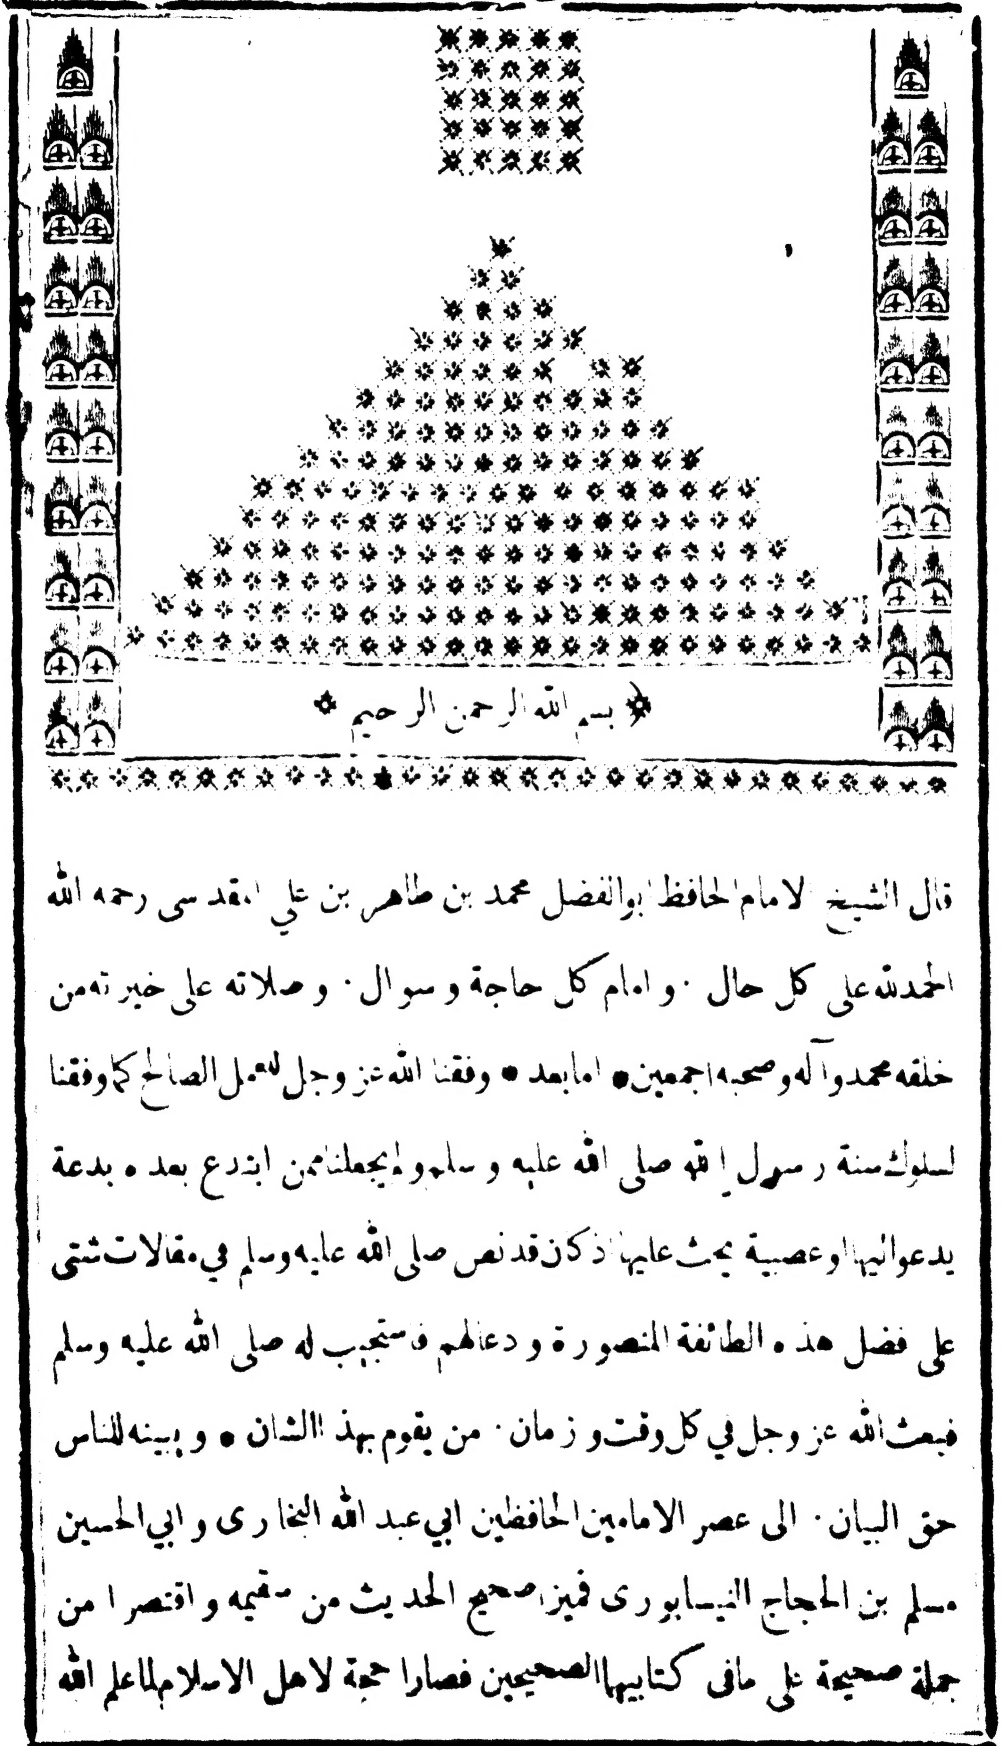 بسم الله الرحمن الرحيم
قال الشيخ الامام الحافظ ابوالفضل محمد بن طاهر بن علي المقدسى رحمه الله
الحمدلله على كل حال . و امام كل حاجة و سوال . و صلاته على خيرته من
خلقه محمد وآله وصحبه اجمعين • امابعد • وفقنا الله عز وجل للعمل الصالح كما وفقنا
لسلوك سنة رسول الله صلى الله عليه و سلم ولم يجعلنا ممن ابتدع بعده بدعة
يدعو اليها او عصبية يحث عليها اذ كان قد نص صلى الله عليه وسلم في مقالات شتى
على فضل هذه الطائفة المنصورة و دعالهم فاستجيب له صلى الله عليه وسلم
فبعث الله عز وجل في كل وقت و زمان . من يقوم بهذا الشان • و يبينه للناس
حق البيان . الى عصر الامامين الحافظين ابي عبد الله البخارى و ابي الحسين
مسلم بن الحجاج النيسابورى فميزا صحيح الحديث من سقيمه و اقتصرا من
جملة صحيحة على مافى كتابيهما الصحيحين فصارا حجة لاهل الاسلام لما علم الله